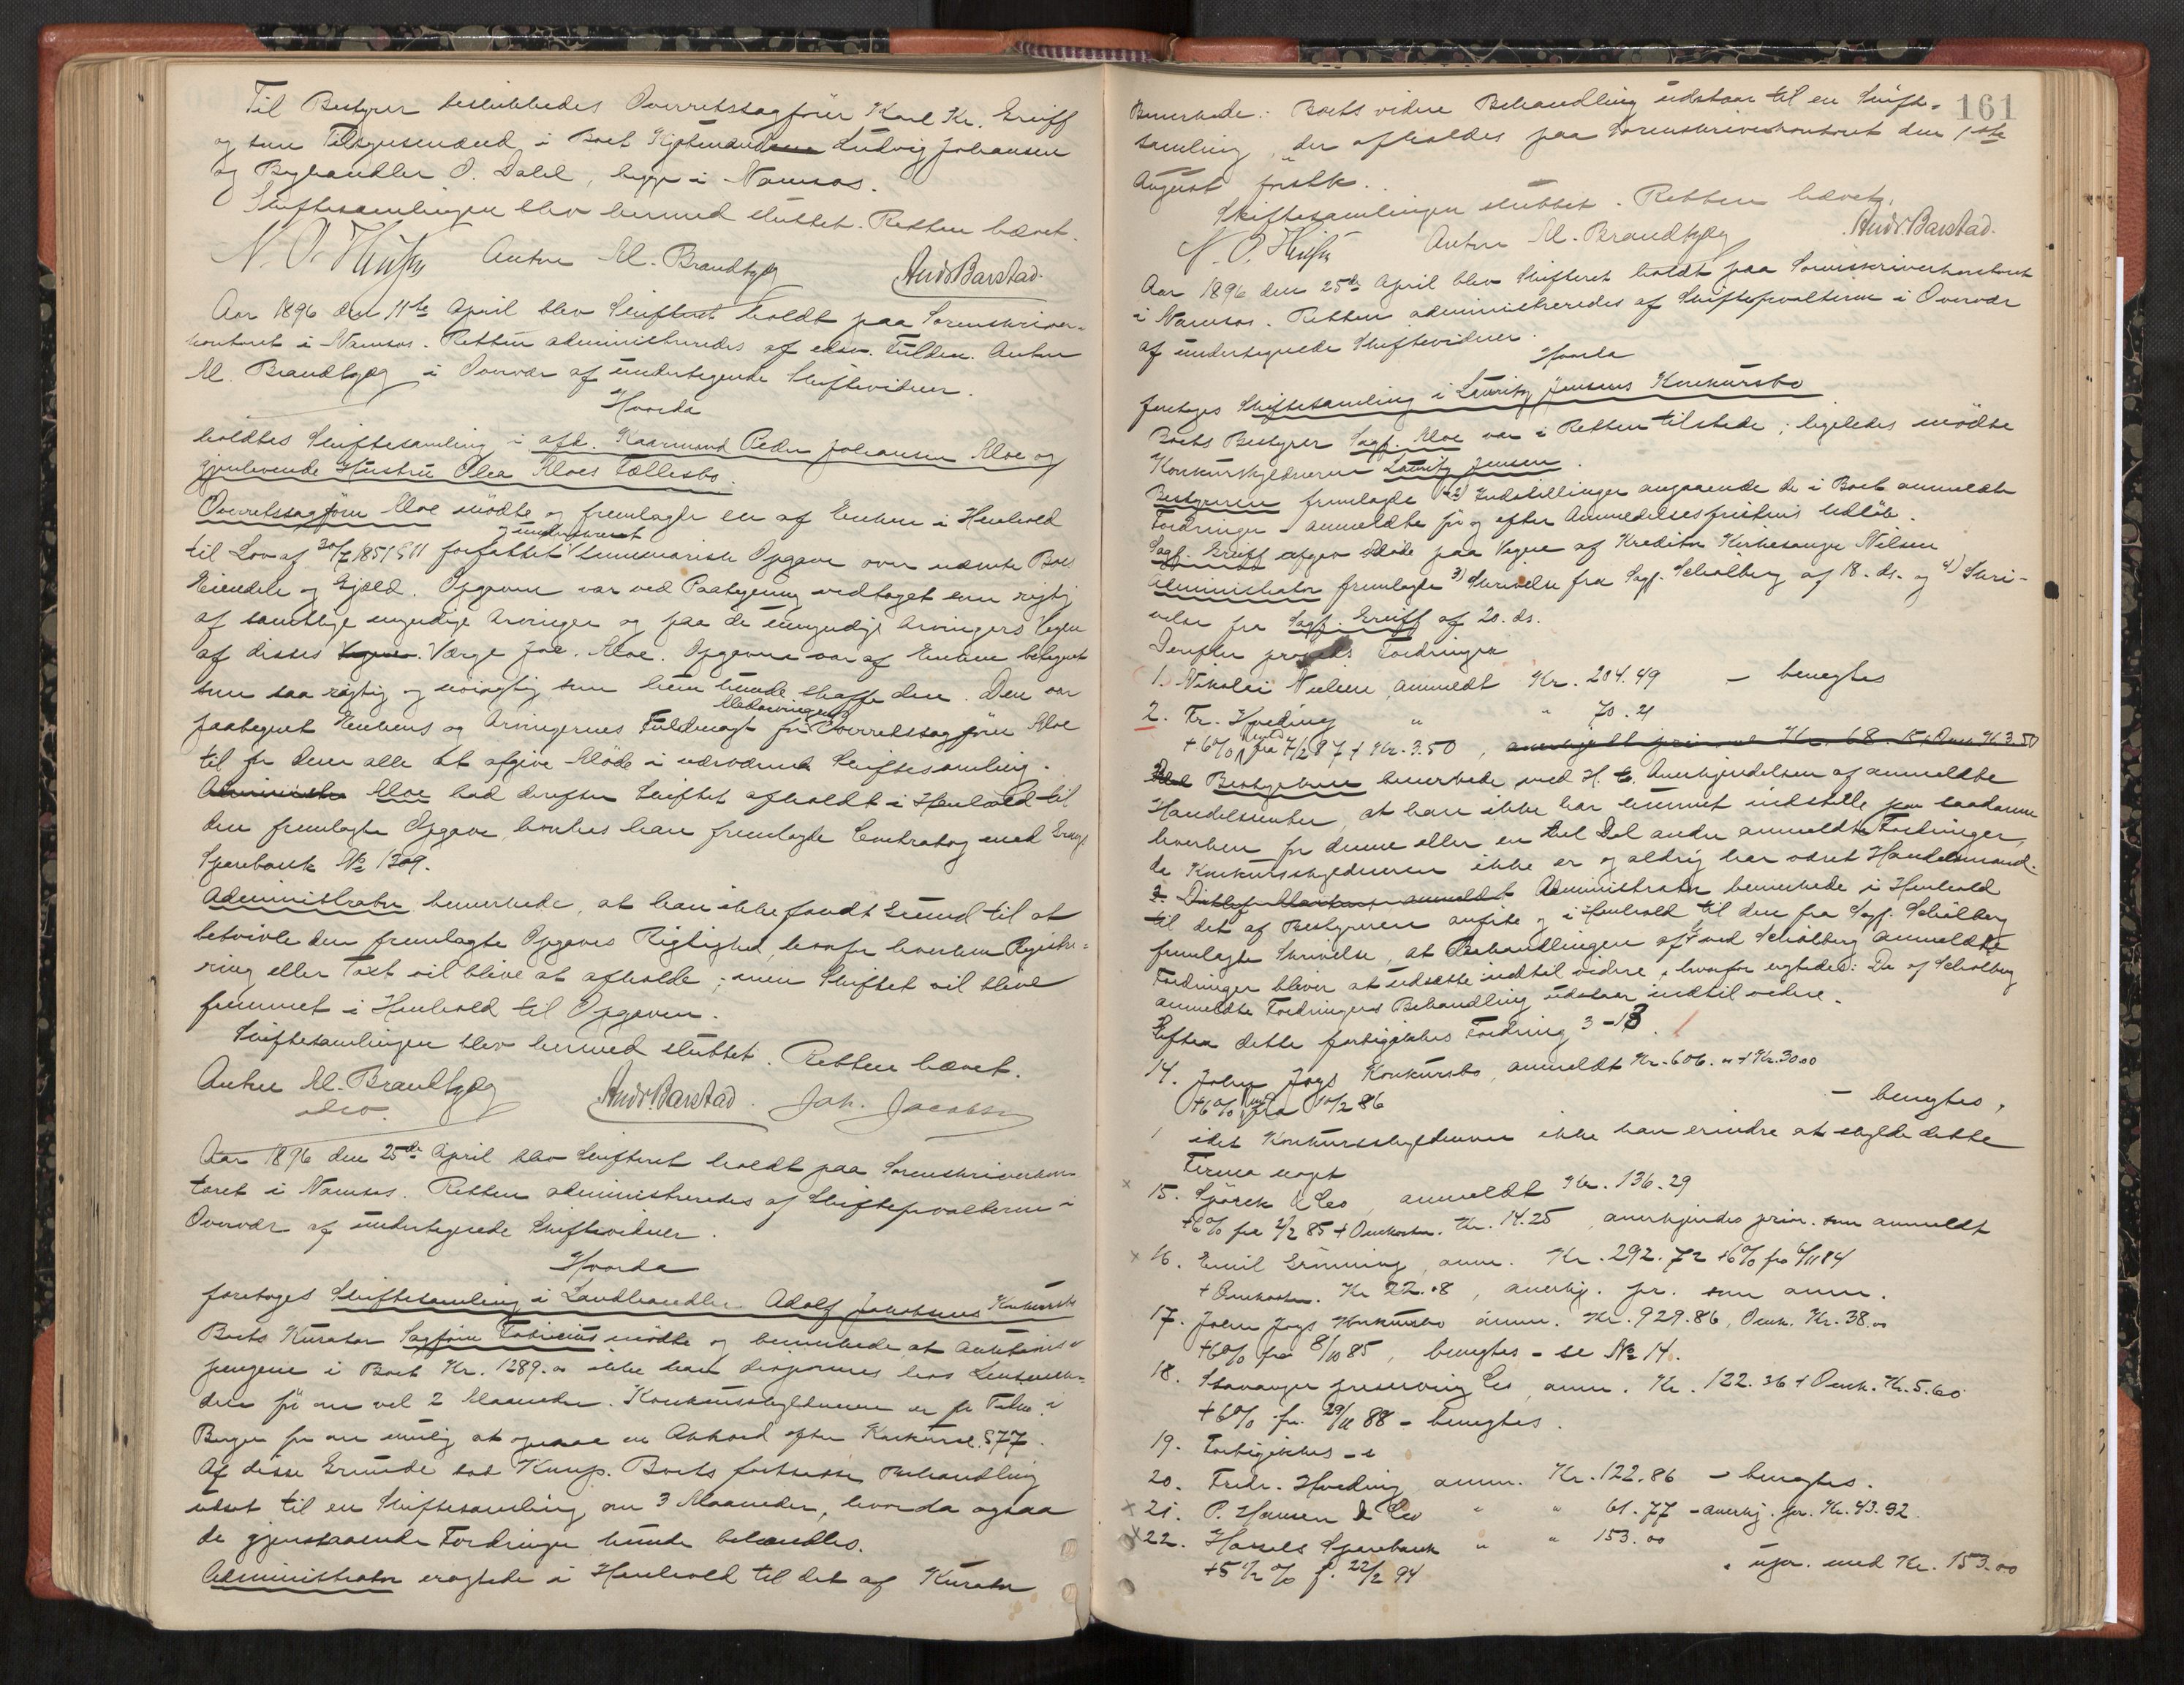 Til Bestyrer beskikkedes Overretssagfører Karl Kr. Greiff
og som Tilsynsmænd i Boet Kjøbmændene Ludvig Johansen
og Boghandler O. Dahl, begge i Namsos.
Skiftesamlingen blev hermed sluttet. Retten hævet.
N. O. Anton M. Brandtzæg Andr Barstad.
Aar 1896 den 11te April blev Skifteret holdt paa Sorenskriver-
kontoret i Namsos. Retten administreredes af edsv. Fuldm. Anton
M. Brandtzæg i Overvær af undertegnede Skiftevidner.
Hvorda
holdtes Skiftesamling i afd. Kaarmand Peder Johansen Moe og
gjenlevende Hustru Olea Moes Fællesbo.
Overretssagfører Moe mødte og fremlagde en af Enken i Henhold
og underskrevet
til Lov af 30/7 1851 § 11 forfattet summarisk Opgave over nævnte Boes
Eiendele og Gjæld. Opgaven var ved Paategning vedtaget som rigtig
af samtlige myndige Arvinger og paa de umyndige Arvingers Vegne
af disses Vegne. Værge Joh. Moe. Opgaven var af Enken betegnet
som saa rigtig og nøiagtig som hun kunde skaffe den. Den var
Medarvingens
paategnet Enkens og Arvingernes Fuldmagt for Overretssagfører Moe
til for dem alle at afgive Møde i nærværende Skiftesamling.
Administr Moe bad derefter Skiftet afholdt i Henhold til
den fremlagte Opgave, hvorhos han fremlagde Contrabog med
Sparebank № 1309.
Administrator bemerkede, at han ikke fandt Grund til at
betvivle den fremlagte Opgaves Rigtighed, hvorfor hverken Registre-
ring eller Taxt vil blive at afholde; men Skiftet vil blive
fremmet i Henhold til Opgaven.
Skiftesamlingen blev hermed sluttet. Retten hævet.
Anton M. Brandtzæg Andr. Barstad. Joh. Jacobsen
edsv.
Aar 1896 den 25de April blev Skifteret holdt paa Sorenskriverkon-
toret i Namsos. Retten administreredes af Skifteforvalteren i
Overvær af undertegnede Skiftevidner.
Hvorda
foretoges Skiftesamling i Landhandler Adolf Jakobsens Konkursbo
Boets Kurator Sagfører Fabricius mødte og bemerkede, at Auktions-
pengene i Boet Kr. 1289.00 ikke kan disponeres hos
den før om vel 2 Maaneder. Konkursskyldneren er for Tiden i
Bergen for om mulig at opnaae en Akkord efter Konkursl. § 77.
Af disse Grunde bad Komp. Boets fortsatte Behandling
udsat til en Skiftesamling om 3 Maaneder, hvorda ogsaa
de gjenstaaende Fordringer kunde behandles.
Administrator eragtede i Henhold til det af Kurator
161
Bemerkede: Boets videre Behandling udstaar til en Skifte-
samling, der afholdes paa Sorenskriverkontoret den 1ste
August førstk.
Skiftesamlingen sluttet. Retten hævet.
N. O. Anton M. Brandtzæg Andr. Barstad.
Aar 1896 den 25de April blev Skifteret holdt paa Sorenskriverkontoret
i Namsos. Retten administreredes af Skifteforvalteren i Overvær
af undertegnede Skiftevidner.
Hvorda
foretoges Skiftesamling i Lauritz Jensens Konkursbo
Boets Bestyrer Sagf. Moe var i Retten tilstede; ligeledes mødte
Konkursskyldneren Lauritz Jensen.
Bestyreren fremlagde 1-2) Indstillinger angaaende de i Boet anmeldte
Fordringer – anmeldte før og efter Anmeldelsesfristens Udløb.
Sagf. Greiff afgav Møde paa Vegne af Kreditor Kirkesanger Nilsen
Administrator fremlagde 3) Skrivelse fra Sagf. Schølberg af 18. ds. og 4) Skri-
velse fra Sagf. Greiff af 20. ds.
Derefter prøvedes Fordringer
1. Nikolai Nielsen, anmeldt Kr. 204.49 – benegtes
2. Fr. Hveding " " 70.21
+ 6% fra 7/2 87 + Kr. 3.50, Kr. 68.15 3.50
Bestyreren bemerkede, med H. t. Anerkjendelsen af anmeldte
Handelsrenter, at han ikke har kunnet indstille paa saadanne
hverken for denne eller en hel Del andre anmeldte Fordringer,
da Konkursskyldneren ikke er og aldrig har været Handelsmand.
3. anmeldt Administrator bemerkede i Henhold
til det af Bestyreren anførte og i Henhold til den fra Sagf. Schølberg
fremlagte Skrivelse, at Behandlingen af de ved Schølberg anmeldte
Fordringer bliver at udsætte indtil videre, hvorfor eragtedes: De af Schølberg
anmeldte Fordringers Behandling udstaar indtil videre.
Efter dette forbigikkes Fordring 3 – 13.
14. John Jogs Konkursbo, anmeldt Kr. 606. " + Kr. 30.00
+ 6% fra 10/2 86 – benegtes,
idet Konkursskyldneren ikke kan erindre at skylde dette
Firma noget
15. Spørck & Co, anmeldt Kr. 136.29
+ 6% fra 2/2 85 + Omkostn. Kr. 14.25, anerkjendes prior. som anmeldt
16. Emil Grønning, anm. Kr. 292.72 + 6% fra 6/11 84
+ Omkostn. Kr 22.08, anerkj. pr. som anm.
17. John Jogs Konkursbo anm. Kr. 929.86, Omk. Kr. 38.00
+ 6% fra 8/10 85, benegtes – se № 14.
18. Stavanger preserving Co, anm. Kr. 122.36 + Omk. Kr. 5.60
+ 6% fra 29/11 88 – benegtes.
19. Forbigikkes –
20. Fredr. Hveding anm. Kr. 122.86 – benegtes.
21. P. Hansen & Co " " 61.77 – anerkj. pr. Kr. 43.92
22. Hassels Sparebank " " 153.00
+ 5 1/2 % f. 22/2 94 . upr. med Kr. 153.00